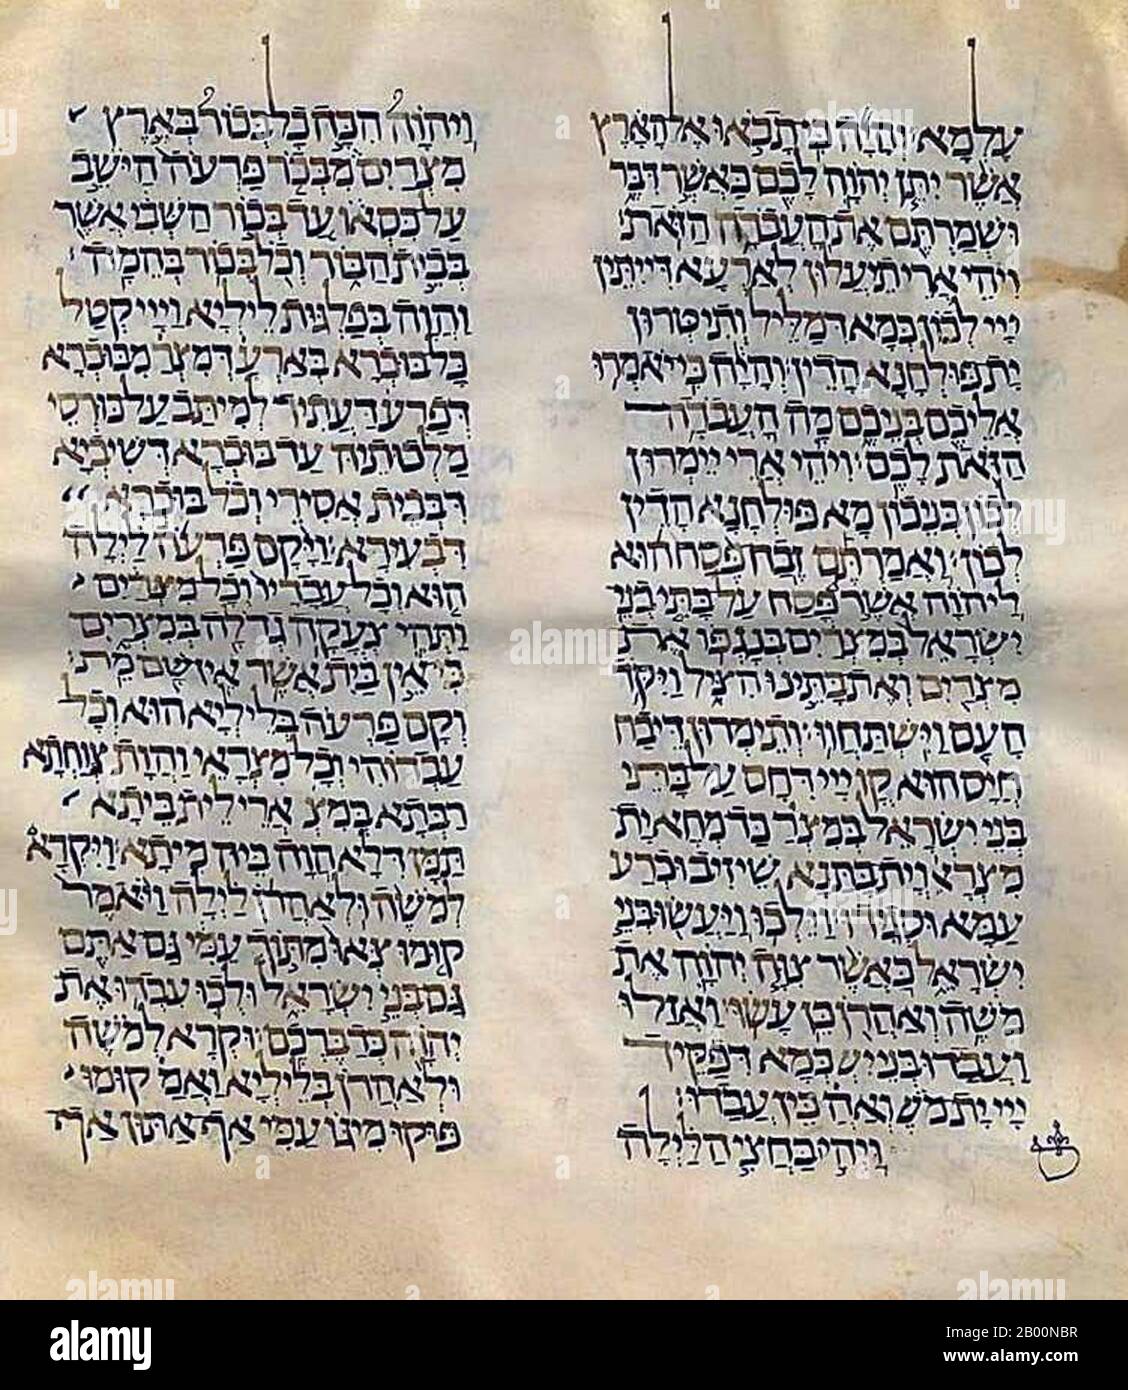 עלמא והיה כי תבאו אל הארץ
אשר יתן יהוה לכם כאשר דבר
ושמרתם את העבדה הזאת
ויהי ארי תיעלון לארעא דייתין
ייי לכון כמא דמליל ותיטרון
ית פולחנא הדין והיה כי יאמרו
אליכם בניכם מה העבדה
הזאת לכם ויהי ארי יימרון
לכון בניכון מא פולחנא הדין
לכון ואמרתם זבח פסח הוא
ליהוה אשר פסח על בתי בני
ישראל במצרים בנגפו את
מצרים ואת בתינו הציל ויקד
העם וישתחוו ותימרון דיבח
חיס הוא ייי דחס על בתי
בני ישראל במצר כד מחא ית
מצרא וית בתנא שיזיב וכרע
עמא וסגידו וילכו ויעשו בני
ישראל כאשר צוה יהוה את
משה ואהרן כן עשו ואזלו
ועבדו בני יש כמא דפקיד
ייי ית מש ואה כין עבדו׃
ויהי בחצי הלילה
ויהוה הכה כל בכור בארץ
מצרים מבכר פרעה הישב
על כסאו עד בכור השבי אשר
בבית הבור וכל בכור בהמה
והוה בפלגות ליליא וייי קטל
כל בוכרא בארע דמצר מבוכרא
דפרעה דעתיד למיתב על כורסי
מלכותיה עד בוכרא דשיביא
דבבית אסירי וכל בוכרא
דבעירא ויקם פרעה לילה
הוא וכל עבדיו וכל מצרים
ותהי צעקה גדלה במצרים
כי אין בית אשר אין שם מת
וקם פרעה בליליא הוא וכל
עבדוהי וכל מצראי והות צוחתא
רבתא במצ ארי לית ביתא
תמן דלא הוה ביה מיתא ויקרא
למשה ולאהרן לילה ויאמר
קומו צאו מתוך עמי גם אתם
גם בני ישראל ולכו עבדו את
יהוה כדברכם וקרא למשה
ולאהרן בליליא ואמ קומו
פוקו מיגו עמי אף אתון אף
alamy
Image ID: 2B00NBR
www.alamy.com